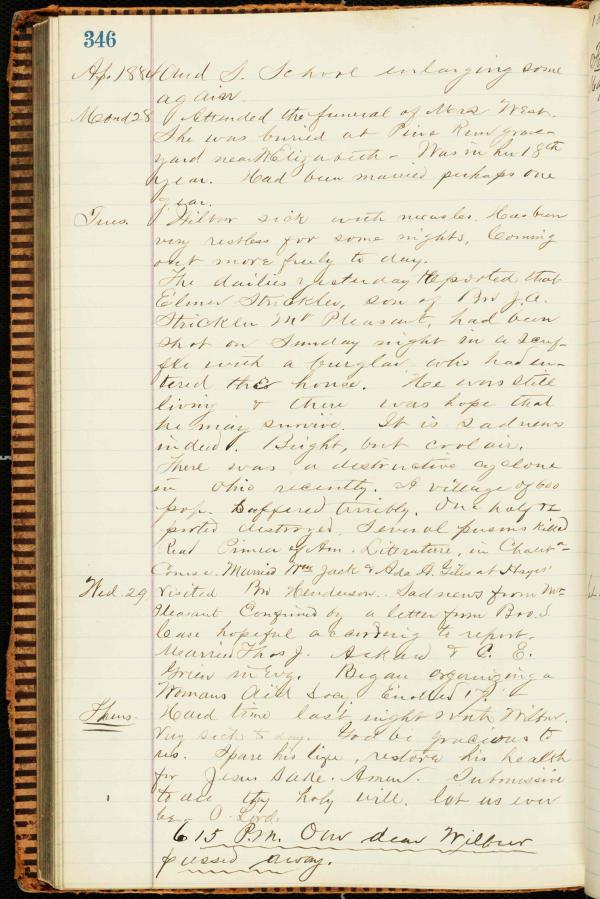 346
Ap. 1884 And S. School enlarging some
again.
Mond 28 Attended the funeral of Mrs West.
She was buried at Pine Run grave-
yard near W Elizabeth - Was in her 18th
year. Had been married perhaps one
year.
Tues. Wilbur sick with measles. Has been
very restless for some nights, Coming
out more freely to day.
The dailies yesterday Reported that
Elmer Strickler, son of Bro J. A.
Strickler Mt Pleasant, had been
shot on Sunday night in a scuf-
fle with a burglar who had en-
tered the house. He was still
living & there was hope that
he may survive. It is sad news
indeed. Bright, but cool air.
There was a destructive cyclone
in Ohio recently. A village of 600
pop. Suffered terribly. One half re
ported destroyed. Several persons killed
Read Primer of Am. Literature, in Chauta-
Course. Married Wm Jack & Ada A. Giles at Hayes'
Wed. 29 Visited Bro Henderson. Sad news from Mt
Pleasant Confirmed by a letter from Bro. S
Case hopeful according to report.
Married Thos J. & C. E.
in Evg. Began organizing a
Womans Aid Soc. Enrolled 17
Thurs. Hard time last night with Wilbur.
Very sick to day. God be gracious to
us. Spare his life, restore his health
for Jesus Sake. Amen. Submissive
to all thy holy will, let us ever
be O Lord.
6 15 P.M. Our dear Wilbur
passed away.